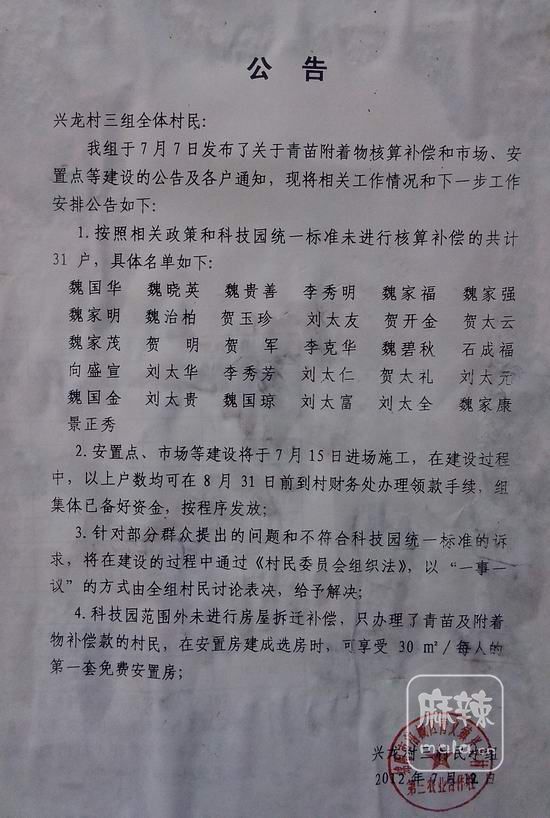 公 告
兴龙村三组全体村民：
我组于7月7日发布了关于青苗附着物核算补偿和市场、安
置点等建设的公告及各户通知，现将相关工作情况和下一步工作
安排公告如下：
1.按照相关政策和科技园统一标准未进行核算补偿的共计
31户，具体名单如下：
魏国华 魏晓英 魏贵善 李秀明 魏家福 魏家强
魏家明 魏治柏 贺玉珍 刘太友 贺开金 贺太云
魏家茂 贺明 贺军 李克华 魏碧秋 石成福
向盛宣 刘太华 李秀芳 刘太仁 贺太礼 刘太元
魏国金 刘太贵 魏国琼 刘太富 刘太全 魏家康
景正秀
2.安置点、市场等建设将于7月15日进场施工，在建设过程
中，以上户数均可在8月31日前到村财务处办理领款手续，组
集体已备好资金，按程序发放；
3.针对部分群众提出的问题和不符合科技园统一标准的诉
求，将在建设的过程中通过《村民委员会组织法》，以“一事一
议”的方式由全组村民讨论表决，给予解决；
4.科技园范围外未进行房屋拆迁补偿，只办理了青苗及附着
物补偿款的村民，在安置房建成选房时，可享受30㎡/每人的
第一套免费安置房；
兴龙村三组村民小组
2012年7月12日
麻辣
mala.cn